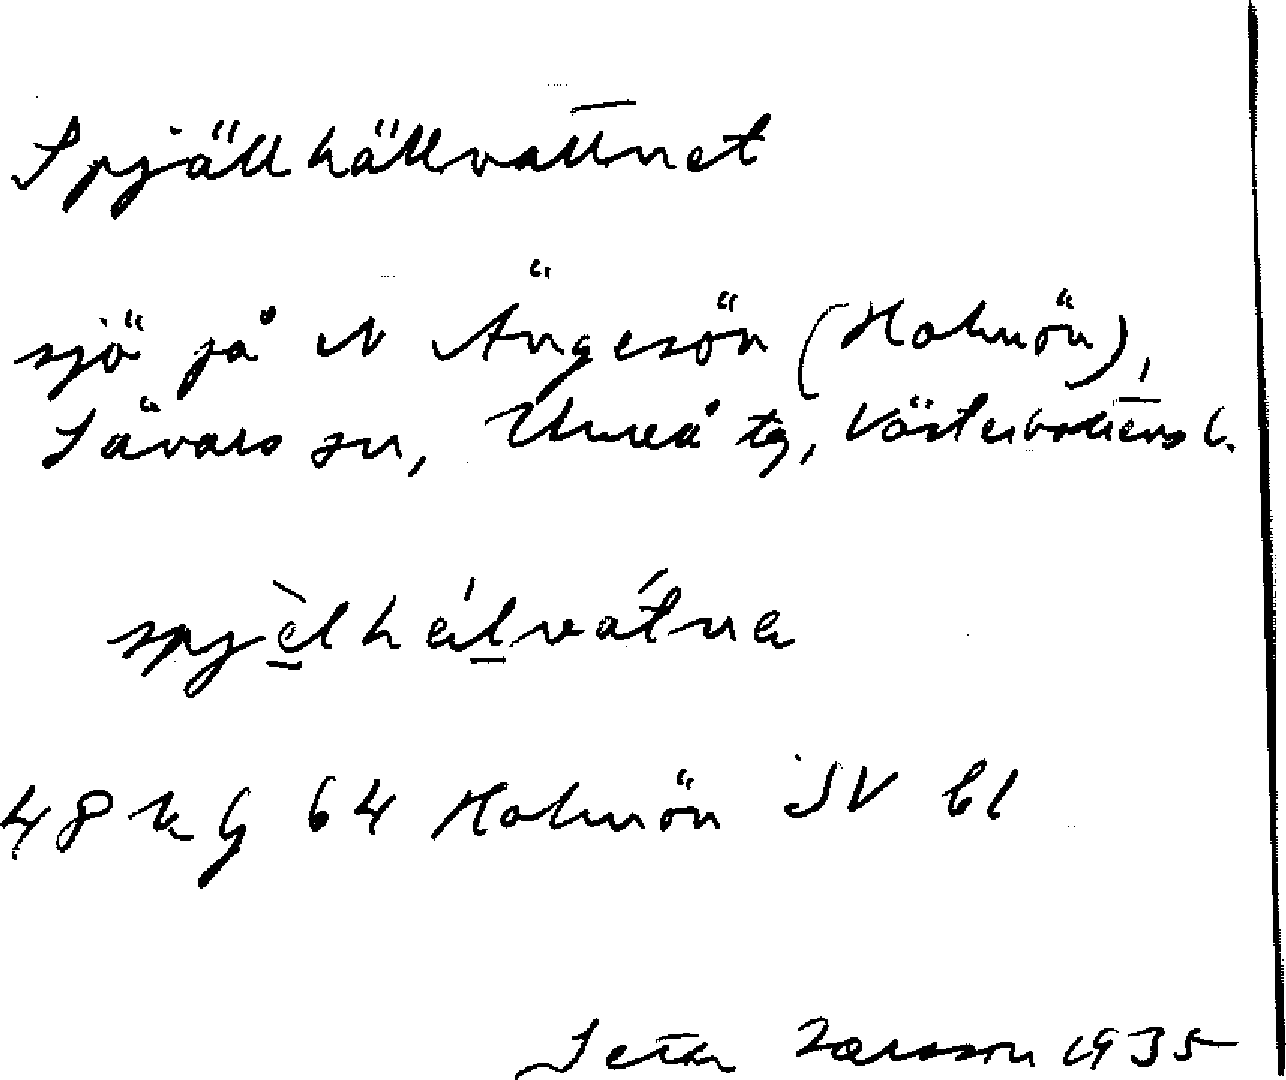 Spjällhällvattnet
sjö på N Ängesön (Holmön),
Sävars sn, Umeå tg, Västerbottens l.
spjèlhálvátna
48 kg 64 Holmön SV bl
Larsson 1935